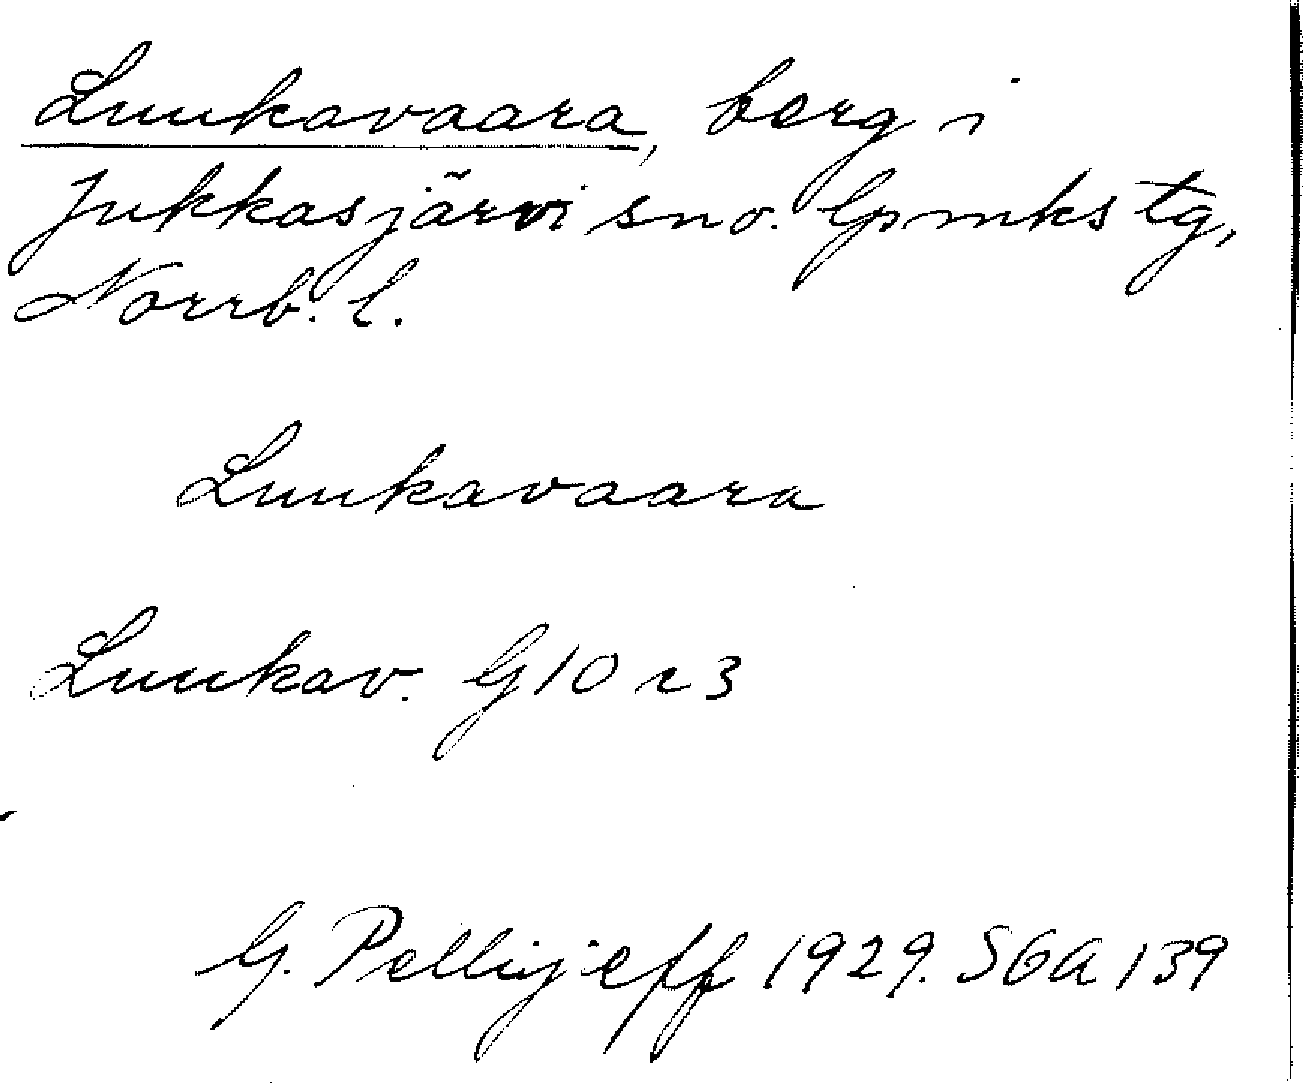 Luukavaara, berg i
Jukkasjärvi sno. lpmks tg,
Norrb. l.
Luukavaara
Luukav. G 10 r 3
G. Pellijeff 1929. SGA 139